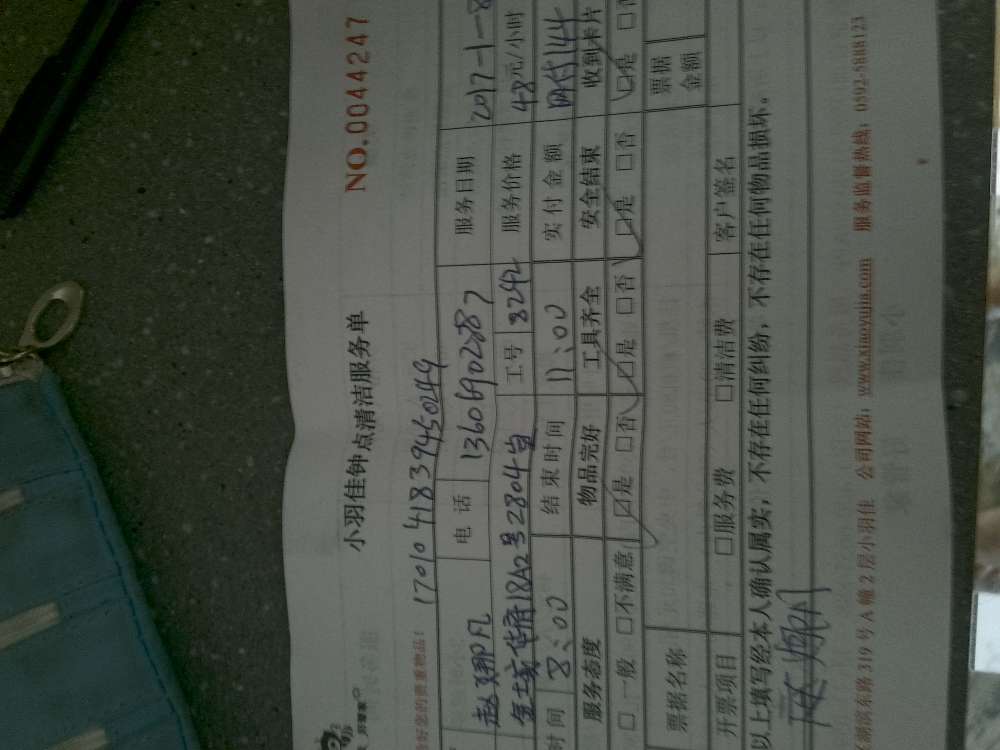 NO.0044247
小羽佳钟点清洁服务单
好您的贵重物品! 1701041839450249
赵娜凡 电话 13606902887 服务日期 2017-1-8
华府18A2号2804室 工号 8242 服务价格 48元/小时
时间 8:00 结束时间 11:00 实付金额 网付144
服务态度 物品完好 工具齐全 安全结束 收到卡片
□一般 □不满意 □是 □否 □是 □否 □是 □否 □是 □否
票据名称 票据金额
开票项目 □服务费 □清洁费 客户签名
以上填写经本人确认属实,不存在任何纠纷,不存在任何物品损坏。
湖滨东路319号A幢2层小羽佳 公司网站:www.xiaoyujia.com 服务监督热线:0592-5888123